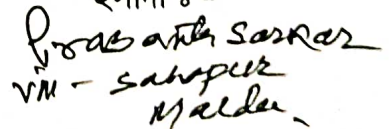 Prasanta Sarkar
Vill - Sahapur
Malda.